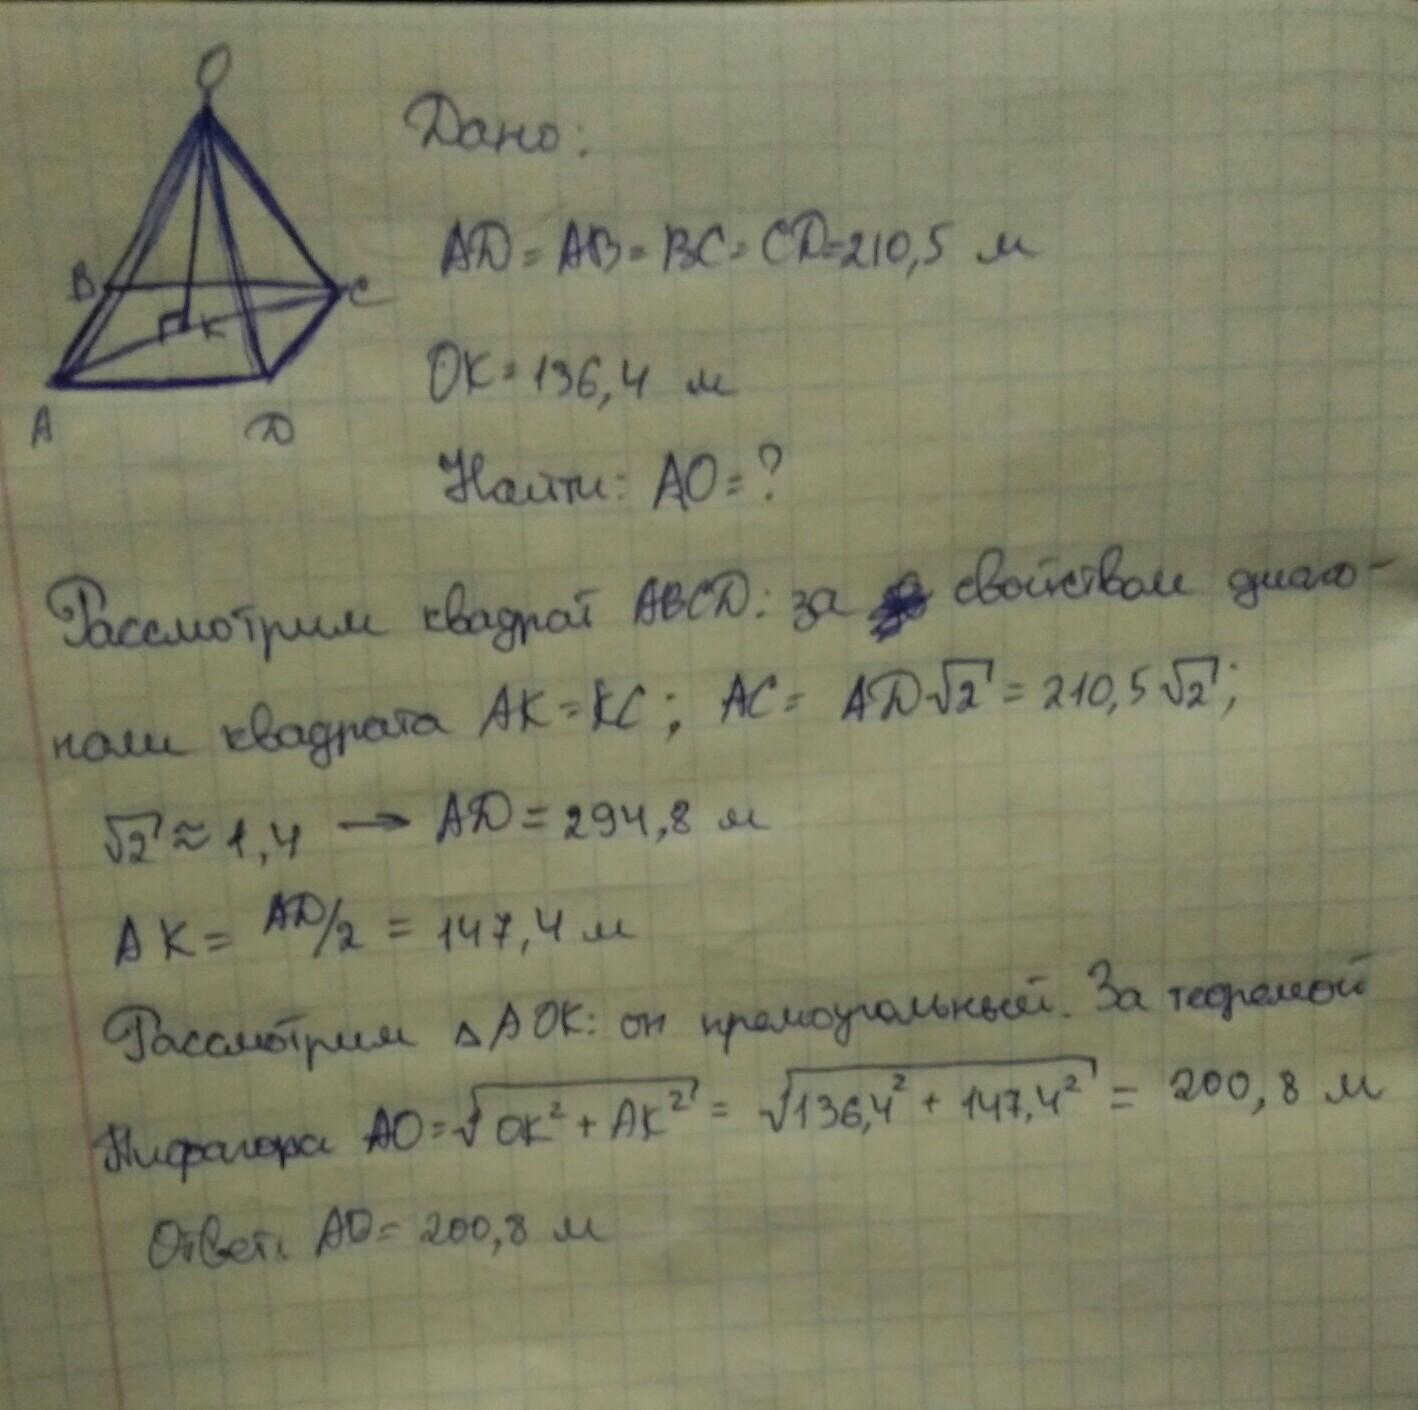 O
Дано:
AD = AB = BC = CD = 210,5 м
B
C
K
OK = 136,4 м
A
D
Найти: AO = ?
Рассмотрим квадрат ABCD: за свойством диаго-
нали квадрата AK = KC; AC = AD√2 = 210,5√2;
√2 ≈ 1,4 → AD = 294,8 м
AK = AD/2 = 147,4 м
Рассмотрим △AOK: он прямоугольный. За теоремой
Пифагора AO = √OK² + AK² = √136,4² + 147,4² = 200,8 м
Ответ: AO = 200,8 м